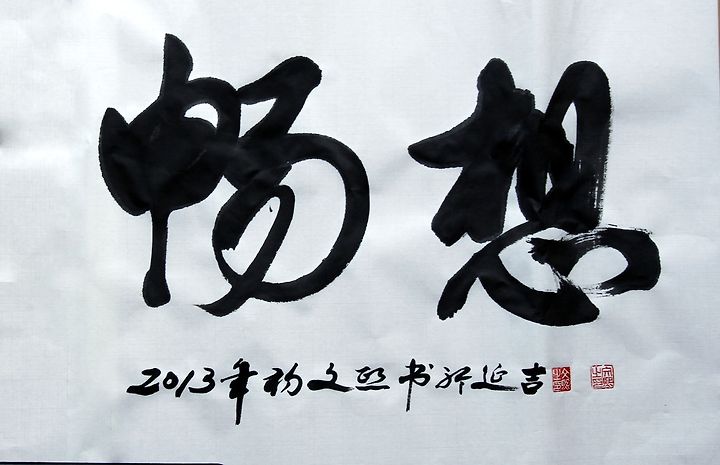 畅想
2013年杨文熙书于延吉